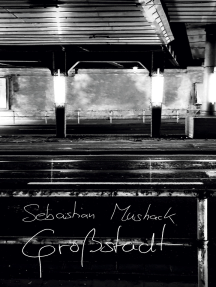 Sebastian Mushack
Großstadt